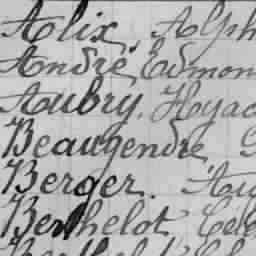 Alix, Alph
André, Edmon
Aubry, Hyac
Beaugendre, G
Berger, Au
Berthelot, Cele